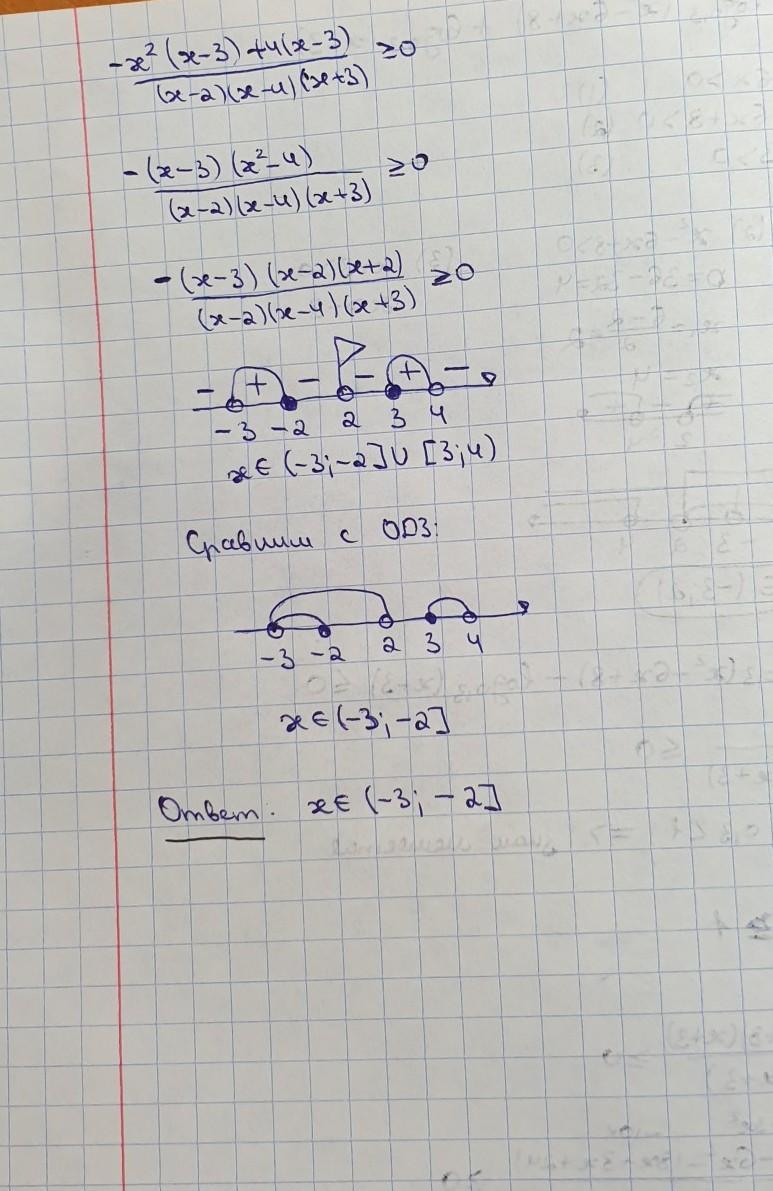 -x²(x-3)+4(x-3) / (x-2)(x-4)(x+3) ≥0
-(x-3)(x²-4) / (x-2)(x-4)(x+3) ≥0
-(x-3)(x-2)(x+2) / (x-2)(x-4)(x+3) ≥0
- + - - + -
-3 -2 2 3 4
x∈(-3;-2]∪[3;4)
Сравним с ОДЗ:
-3 -2 2 3 4
x∈(-3;-2]
Ответ: x∈(-3;-2]